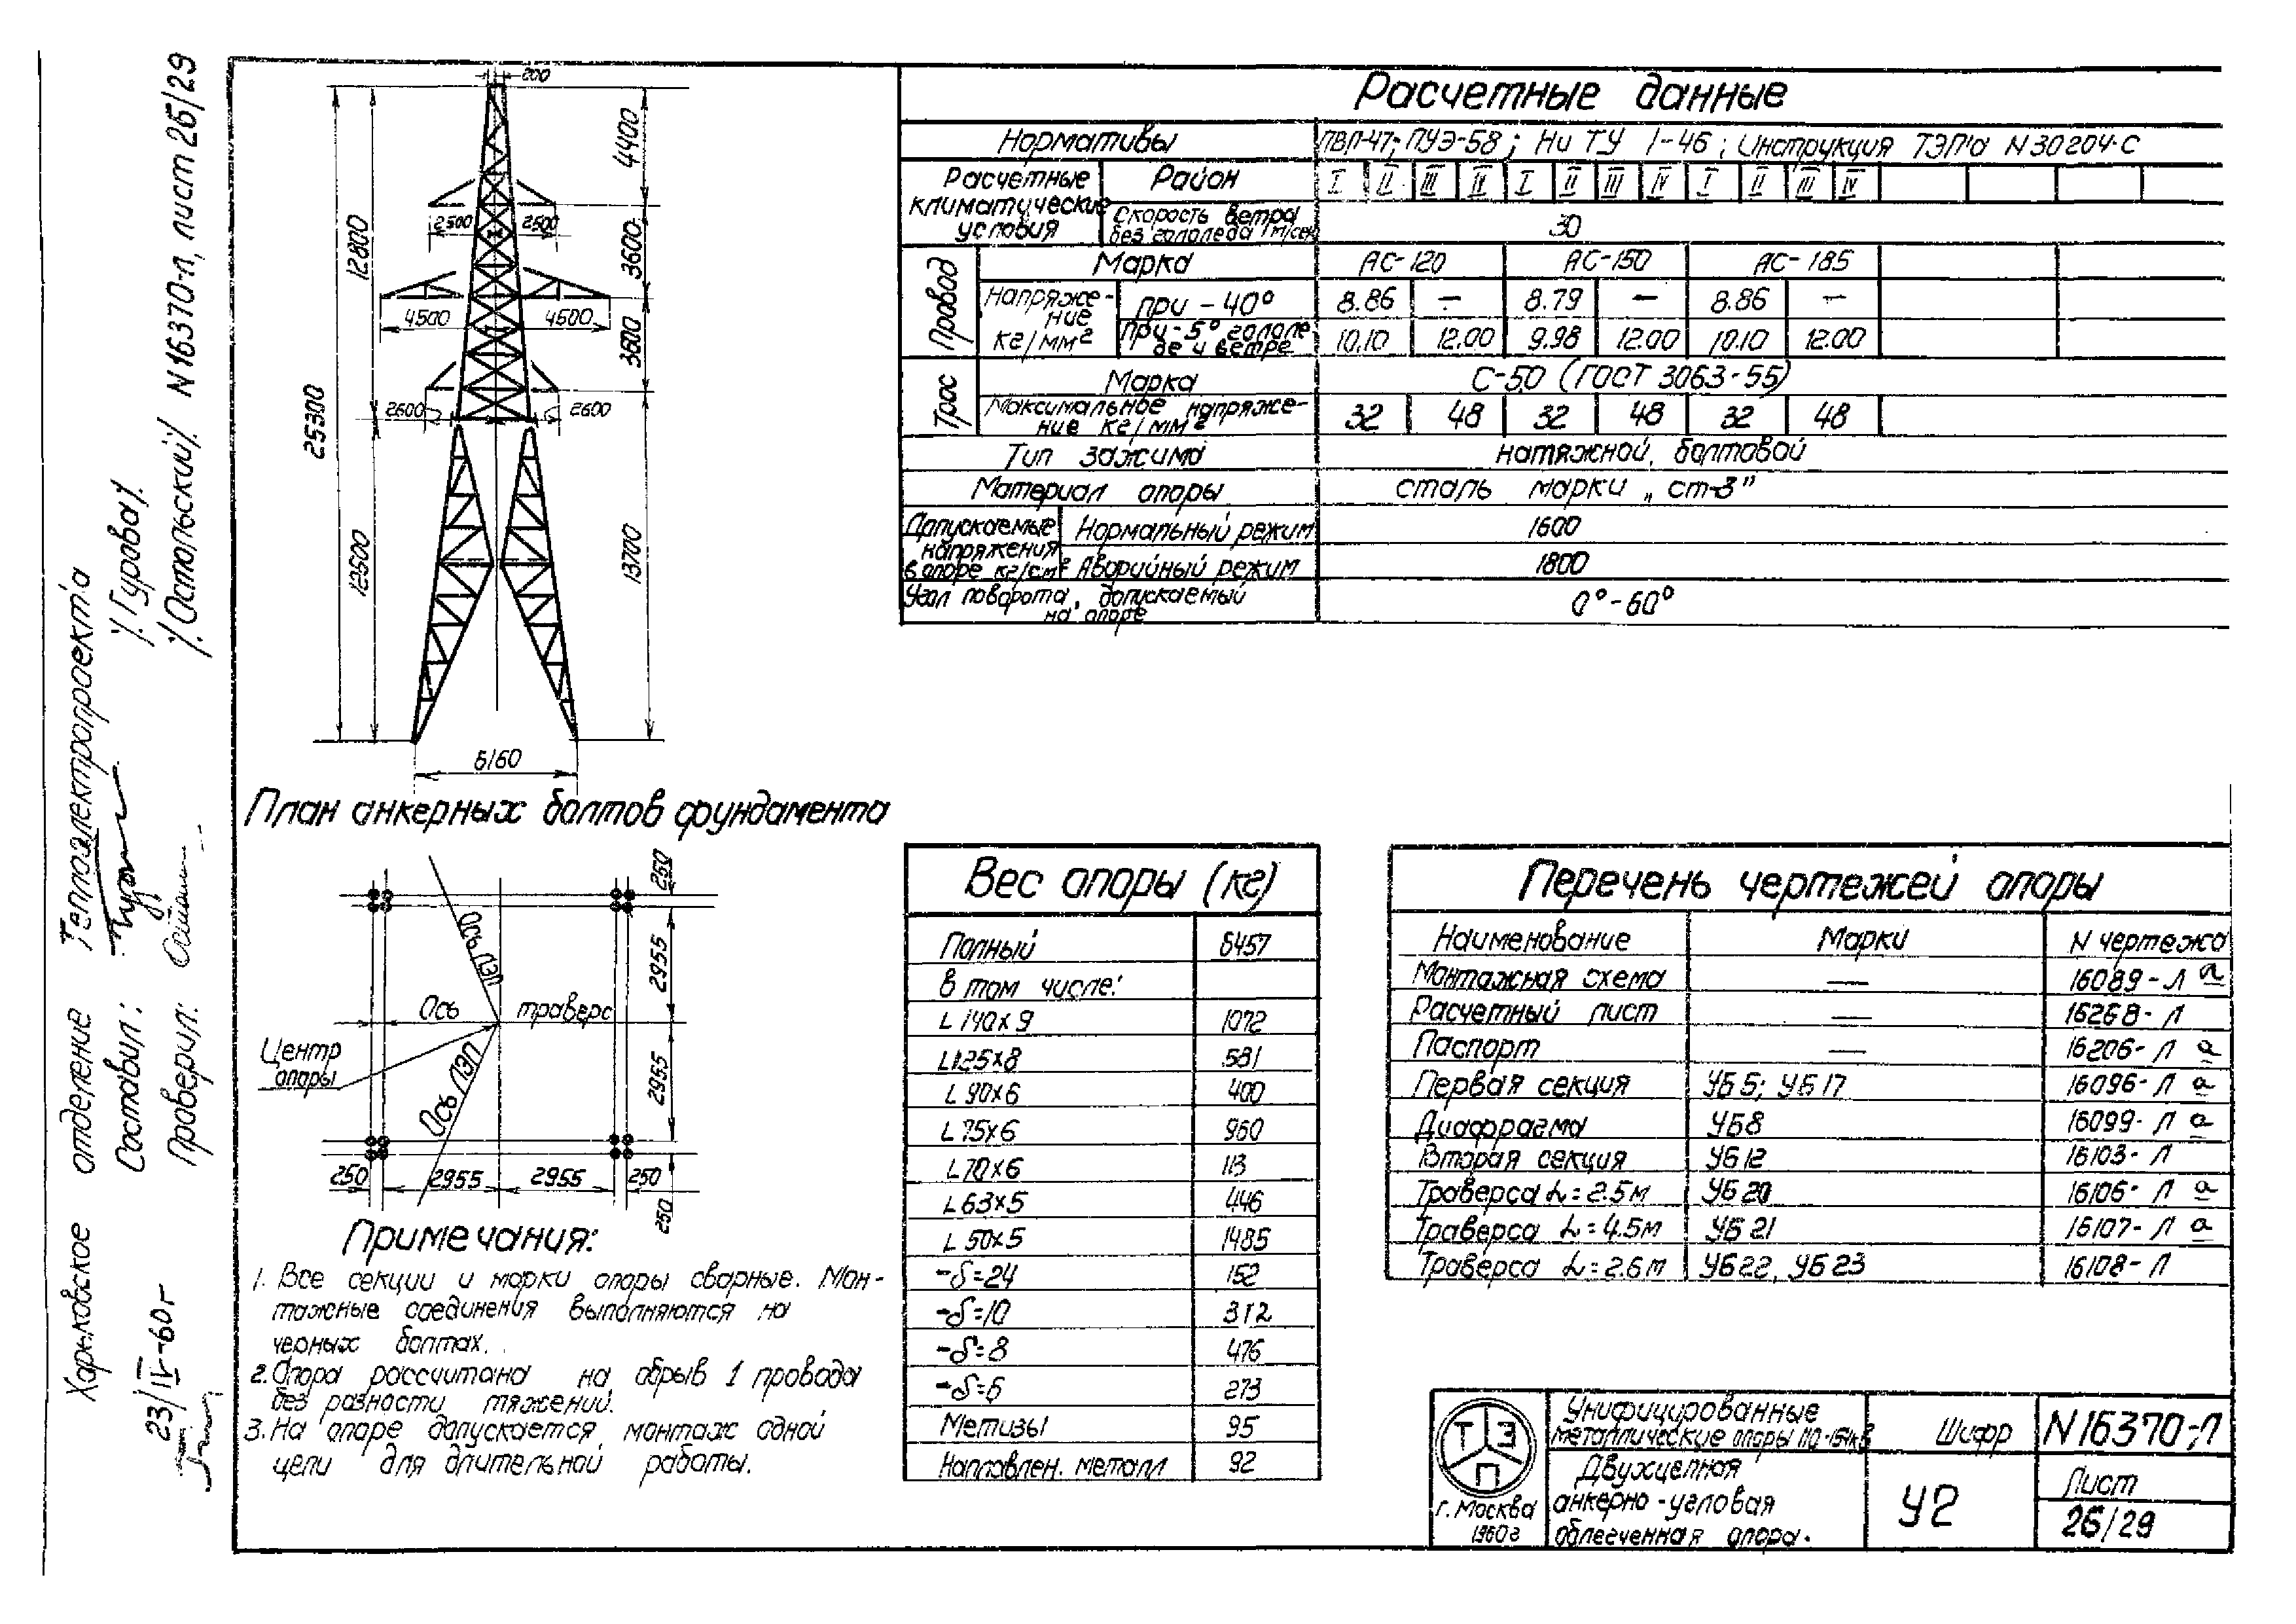 Харьковское отделение Теплоэлектропроекта
Составил: /Гурова/
Проверил: /Остольский/
23/IV-60г
N16370-л, лист 26/29
200
4400
2500 2500
3600
12800
4500 4500
3600
2600 2600
25300
12500
13700
6160
План анкерных болтов фундамента
250
Ось ЛЭП
2955
Ось траверс
Центр
опоры
Ось ЛЭП
2955
250 2955 2955 250
250
Примечания:
1. Все секции и марки опоры сварные. Мон-
тажные соединения выполняются на
черных болтах.
2. Опора рассчитана на обрыв 1 провода
без разности тяжений.
3. На опоре допускается монтаж одной
цепи для длительной работы.
Расчетные данные
Нормативы ПВЛ-47; ПУЭ-58; Ни ТУ 1-46; Инструкция ТЭП'а N30204-С
Расчетные климатические условия
Район I II III IV I II III IV I II III IV
Скорость ветра без гололеда м/сек 30
Провод
Марка АС-120 АС-150 АС-185
Напряже-
ние
кг/мм²
при -40° 8.86 — 8.79 — 8.86 —
При -5° гололе-
де и ветре 10.10 12.00 9.98 12.00 10.10 12.00
Трос
Марка С-50 (ГОСТ 3063-55)
Максимальное напряже-
ние кг/мм² 32 48 32 48 32 48
Тип зажима натяжной, болтовой
Материал опоры сталь марки „ст-3"
Допускаемые
напряжения
в опоре кг/см²
Нормальный режим 1600
Аварийный режим 1800
Угол поворота, допускаемый
на опоре 0°-60°
Вес опоры (кг)
Полный 6457
в том числе:
L 140x9 1072
L125x8 581
L 90x6 400
L 75x6 960
L70x6 113
L 63x5 446
L 50x5 1485
-δ=24 152
-δ=10 312
-δ=8 476
-δ=6 273
Метизы 95
Направлен. металл 92
Перечень чертежей опоры
Наименование Марки N чертежа
Монтажная схема — 16089-Л а
Расчетный лист — 16268-Л
Паспорт — 16206-Л а
Первая секция УБ5; УБ17 16096-Л а
Диафрагма УБ8 16099-Л а
Вторая секция УБ12 16103-Л
Траверса L=2.5м УБ20 16106-Л а
Траверса L=4.5м УБ21 16107-Л а
Траверса L=2.6м УБ22, УБ23 16108-Л
ТЭП
г. Москва
1960г
Унифицированные
металлические опоры 110-154кВ
Двухцепная
анкерно-угловая
облегченная опора.
Шифр
У2
N16370-Л
Лист
26/29